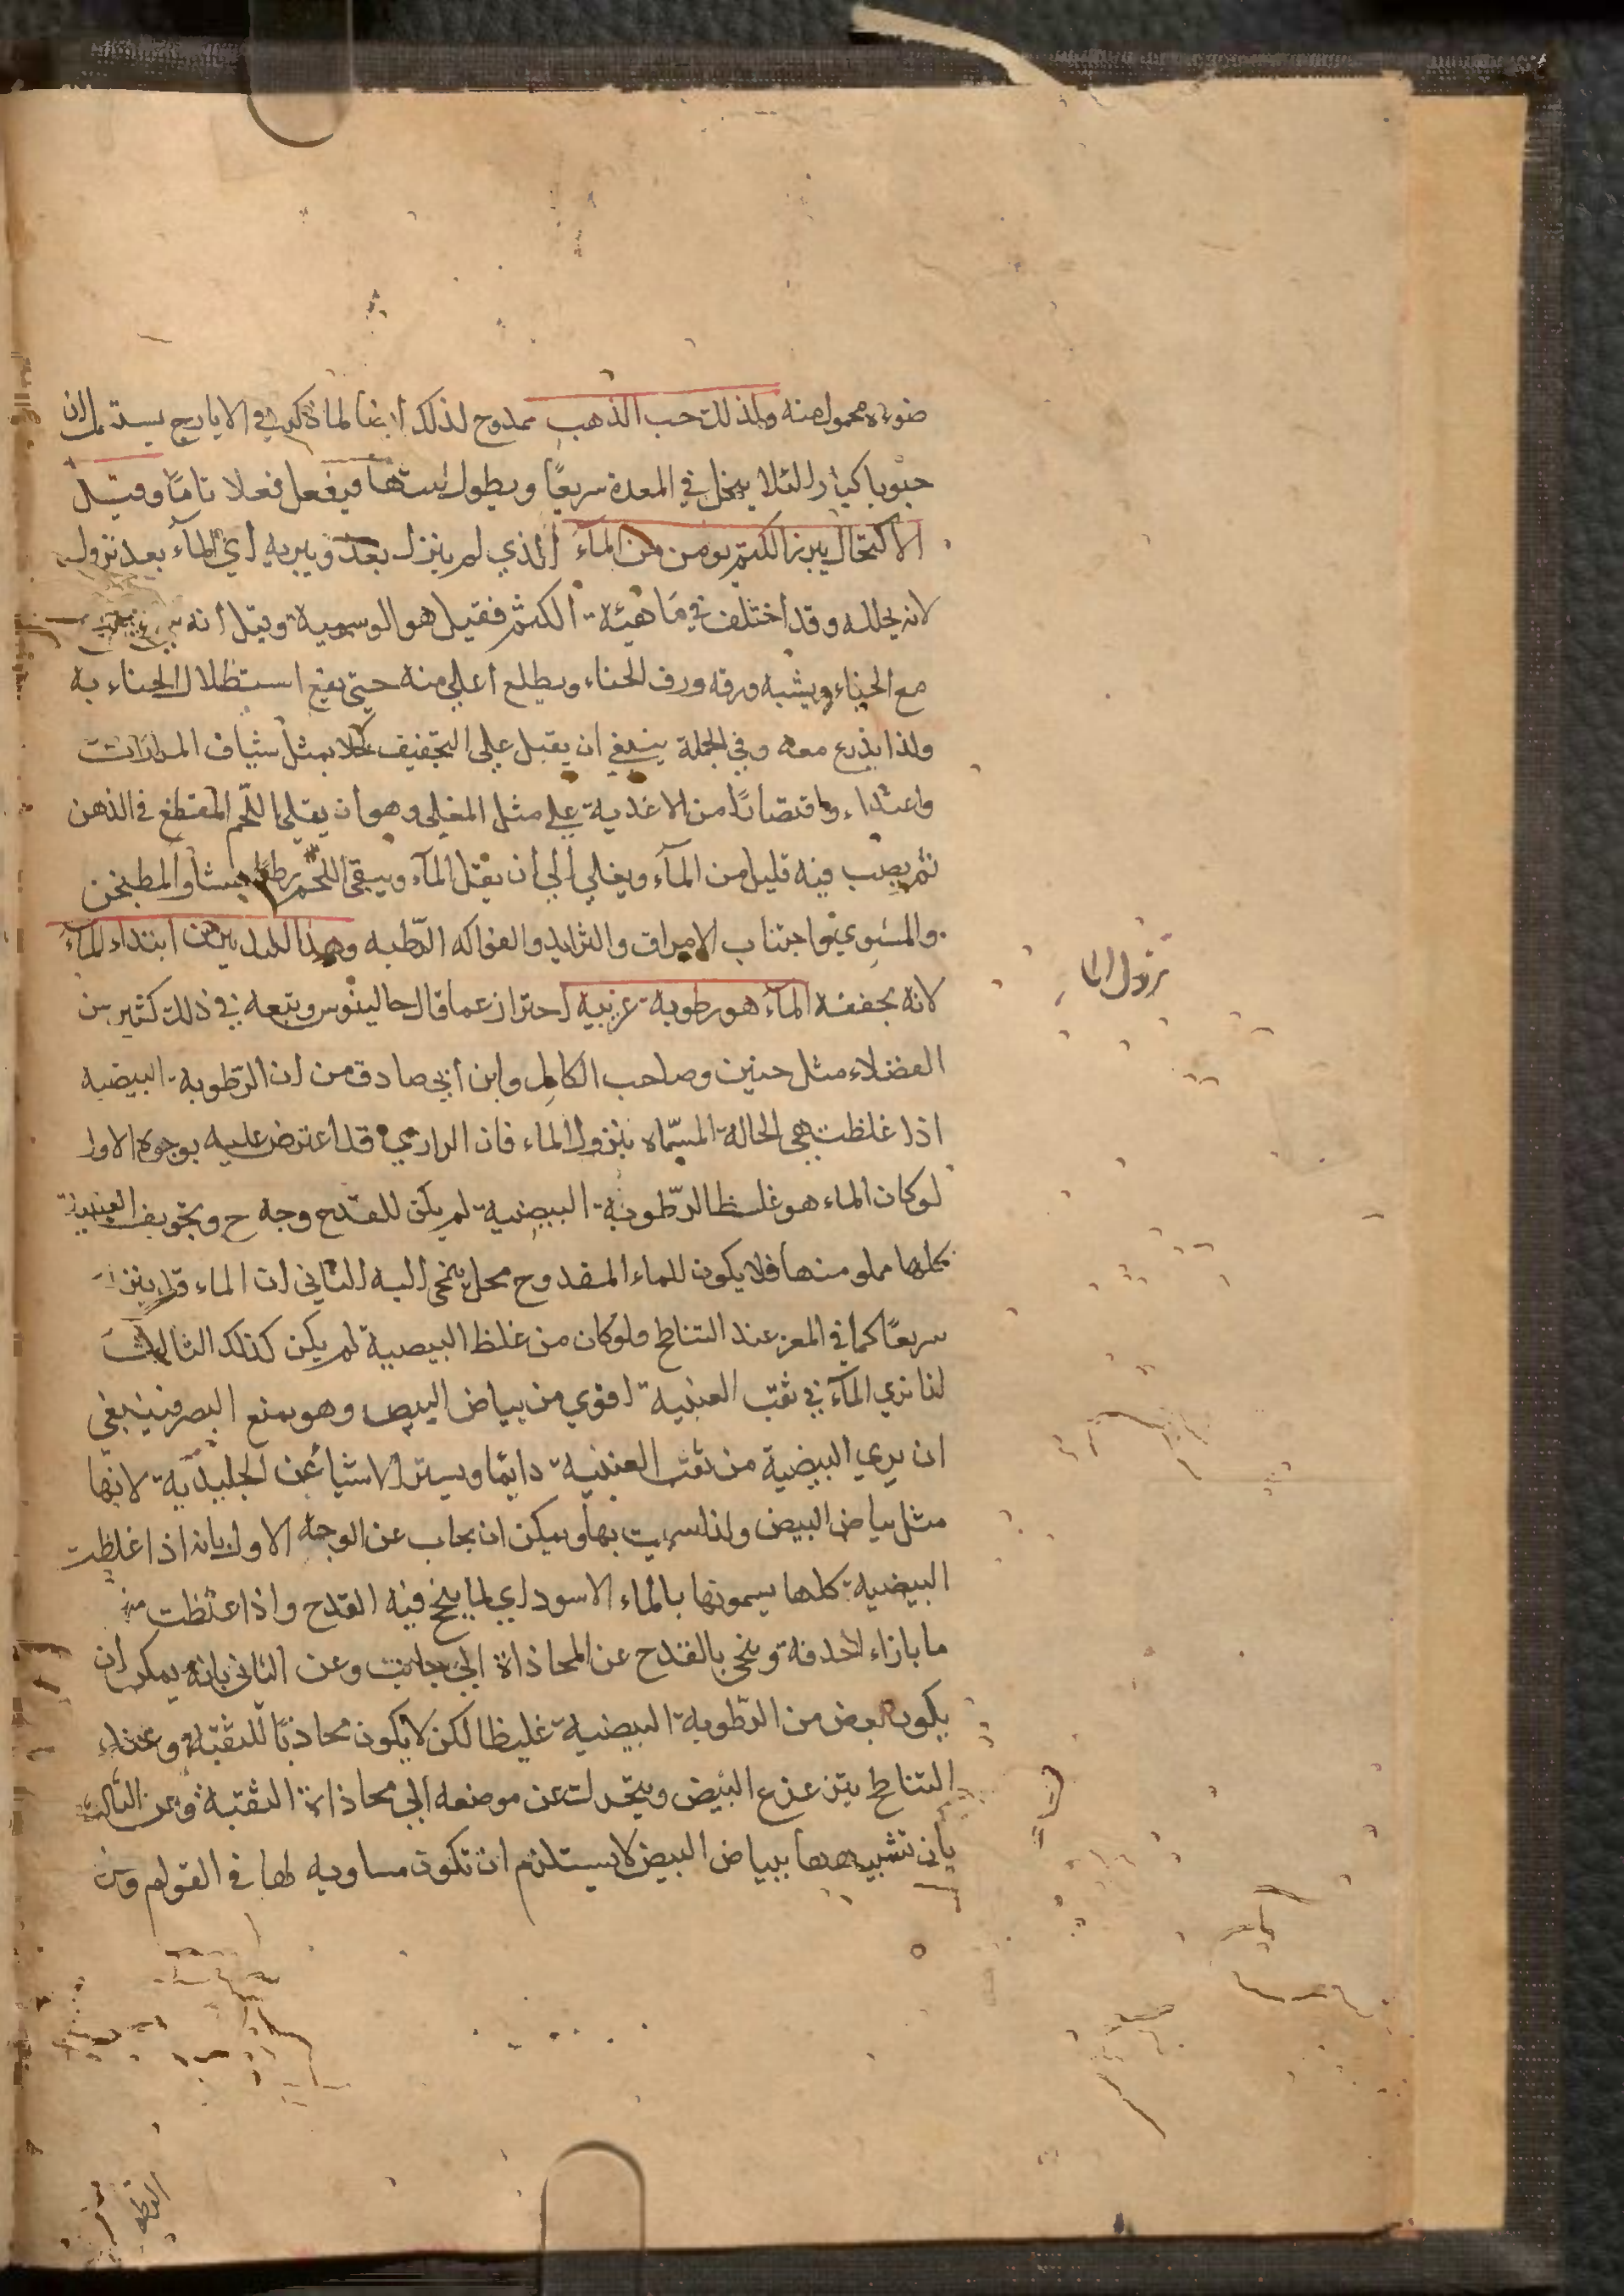 ضوءه محمول منه ولذلك حب الذهب ممدوح لذلك ايضا لما ذكر في الايارج يستعمل ان
حبوبا كبارا لئلا ينحل في المعدة سريعًا ويطول لبثها فيفعل فعلا تامًا وقيل
الاكتحال ببزر الكتم يومن من المآء الذي لم ينزل بعد ويبريه اي المآء بعد نزوله
لانه يحلله وقد اختلف في ماهيئة الكتم فقيل هو الوسمية وقيل انه
مع الحناء ويشبه ورقه ورق الحناء ويطلع اعلي منه حتي يقع استظلال الحناء به
ولذا يذرع معه وفي الجملة ينبغي ان يقبل علي التجفيف كحلا بمثل شياف المرارات
واغتذاء واقتصارًا من الاغدية علي مثل المغلي وهو ان يقلى اللحم المقطع في الدهن
ثم يصب فيه قليل من المآء ويغلي الي ان يقتل المآء ويبقى اللحم رطبا والمطبخن
والمشوي واجتناب الامراق والثرايد والفواكه الرّطبه وهذا التدبير من ابتداء المآء
لانه يجففه المآء هو رطوبة غريبة احتراز عما قال جالينوس وتبعه في ذلك كثير من
الفضلاء مثل حنين وصاحب الكامل وابن أبي صادق من ان الرّطوبة البيضيه
اذا غلظت هي الحالة المسمّاه بنزول الماء فان الرازي قد اعترض عليه بوجوه الاول
لو كان الماء هو غلظ الرّطوبة البيضية لم يكن للقدح وجه ح وتجويف العنبية
كلها مملو منها فلا يكون للماء المقدوح محل ينحي اليه الثاني ان الماء قد ينزل
سريعًا كما في المعز عند التناطح ولو كان من غلظ البيضية لم يكن كذلك الثالث
لنا نري المآء في ثقب العنبية اقوي من بياض البيض وهو يمنع البصر فينبغي
ان يري البيضية من ثقب العنبية دايمًا ويستر الاشيا عن الجليديّة لانها
مثل بياض البيض ولذا سميت بها ويمكن ان يجاب عن الوجه الاول بانه اذا غلظت
البيضية كلها يسمونها بالماء الاسود اي لما ينجح فيه القدح واذا غلظت منه
ما بازاء الحدقة وينحي بالقدح عن المحاذاة الي جانب وعن الثاني بانه يمكن ان
يكون بعض من الرّطوبة البيضية غليظا لكن لا يكون محاذيًا للثقبة وعند
التناطح يتزعزع البيض ويتحرك عن موضعه الي محاذاة الثقبة وعن الثالث
بان تشبيهها ببياض البيض لا يستلزم ان تكون مساويه لها في القوام ومن
نزول الما